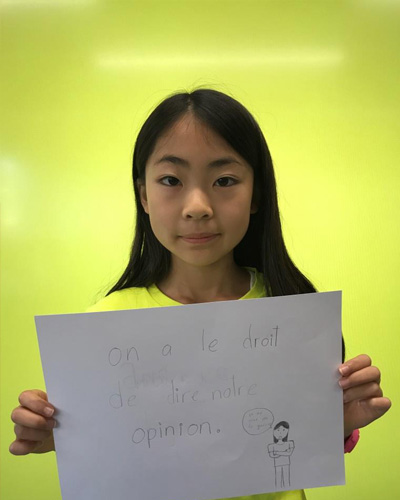 on a le droit
de dire notre
opinion.